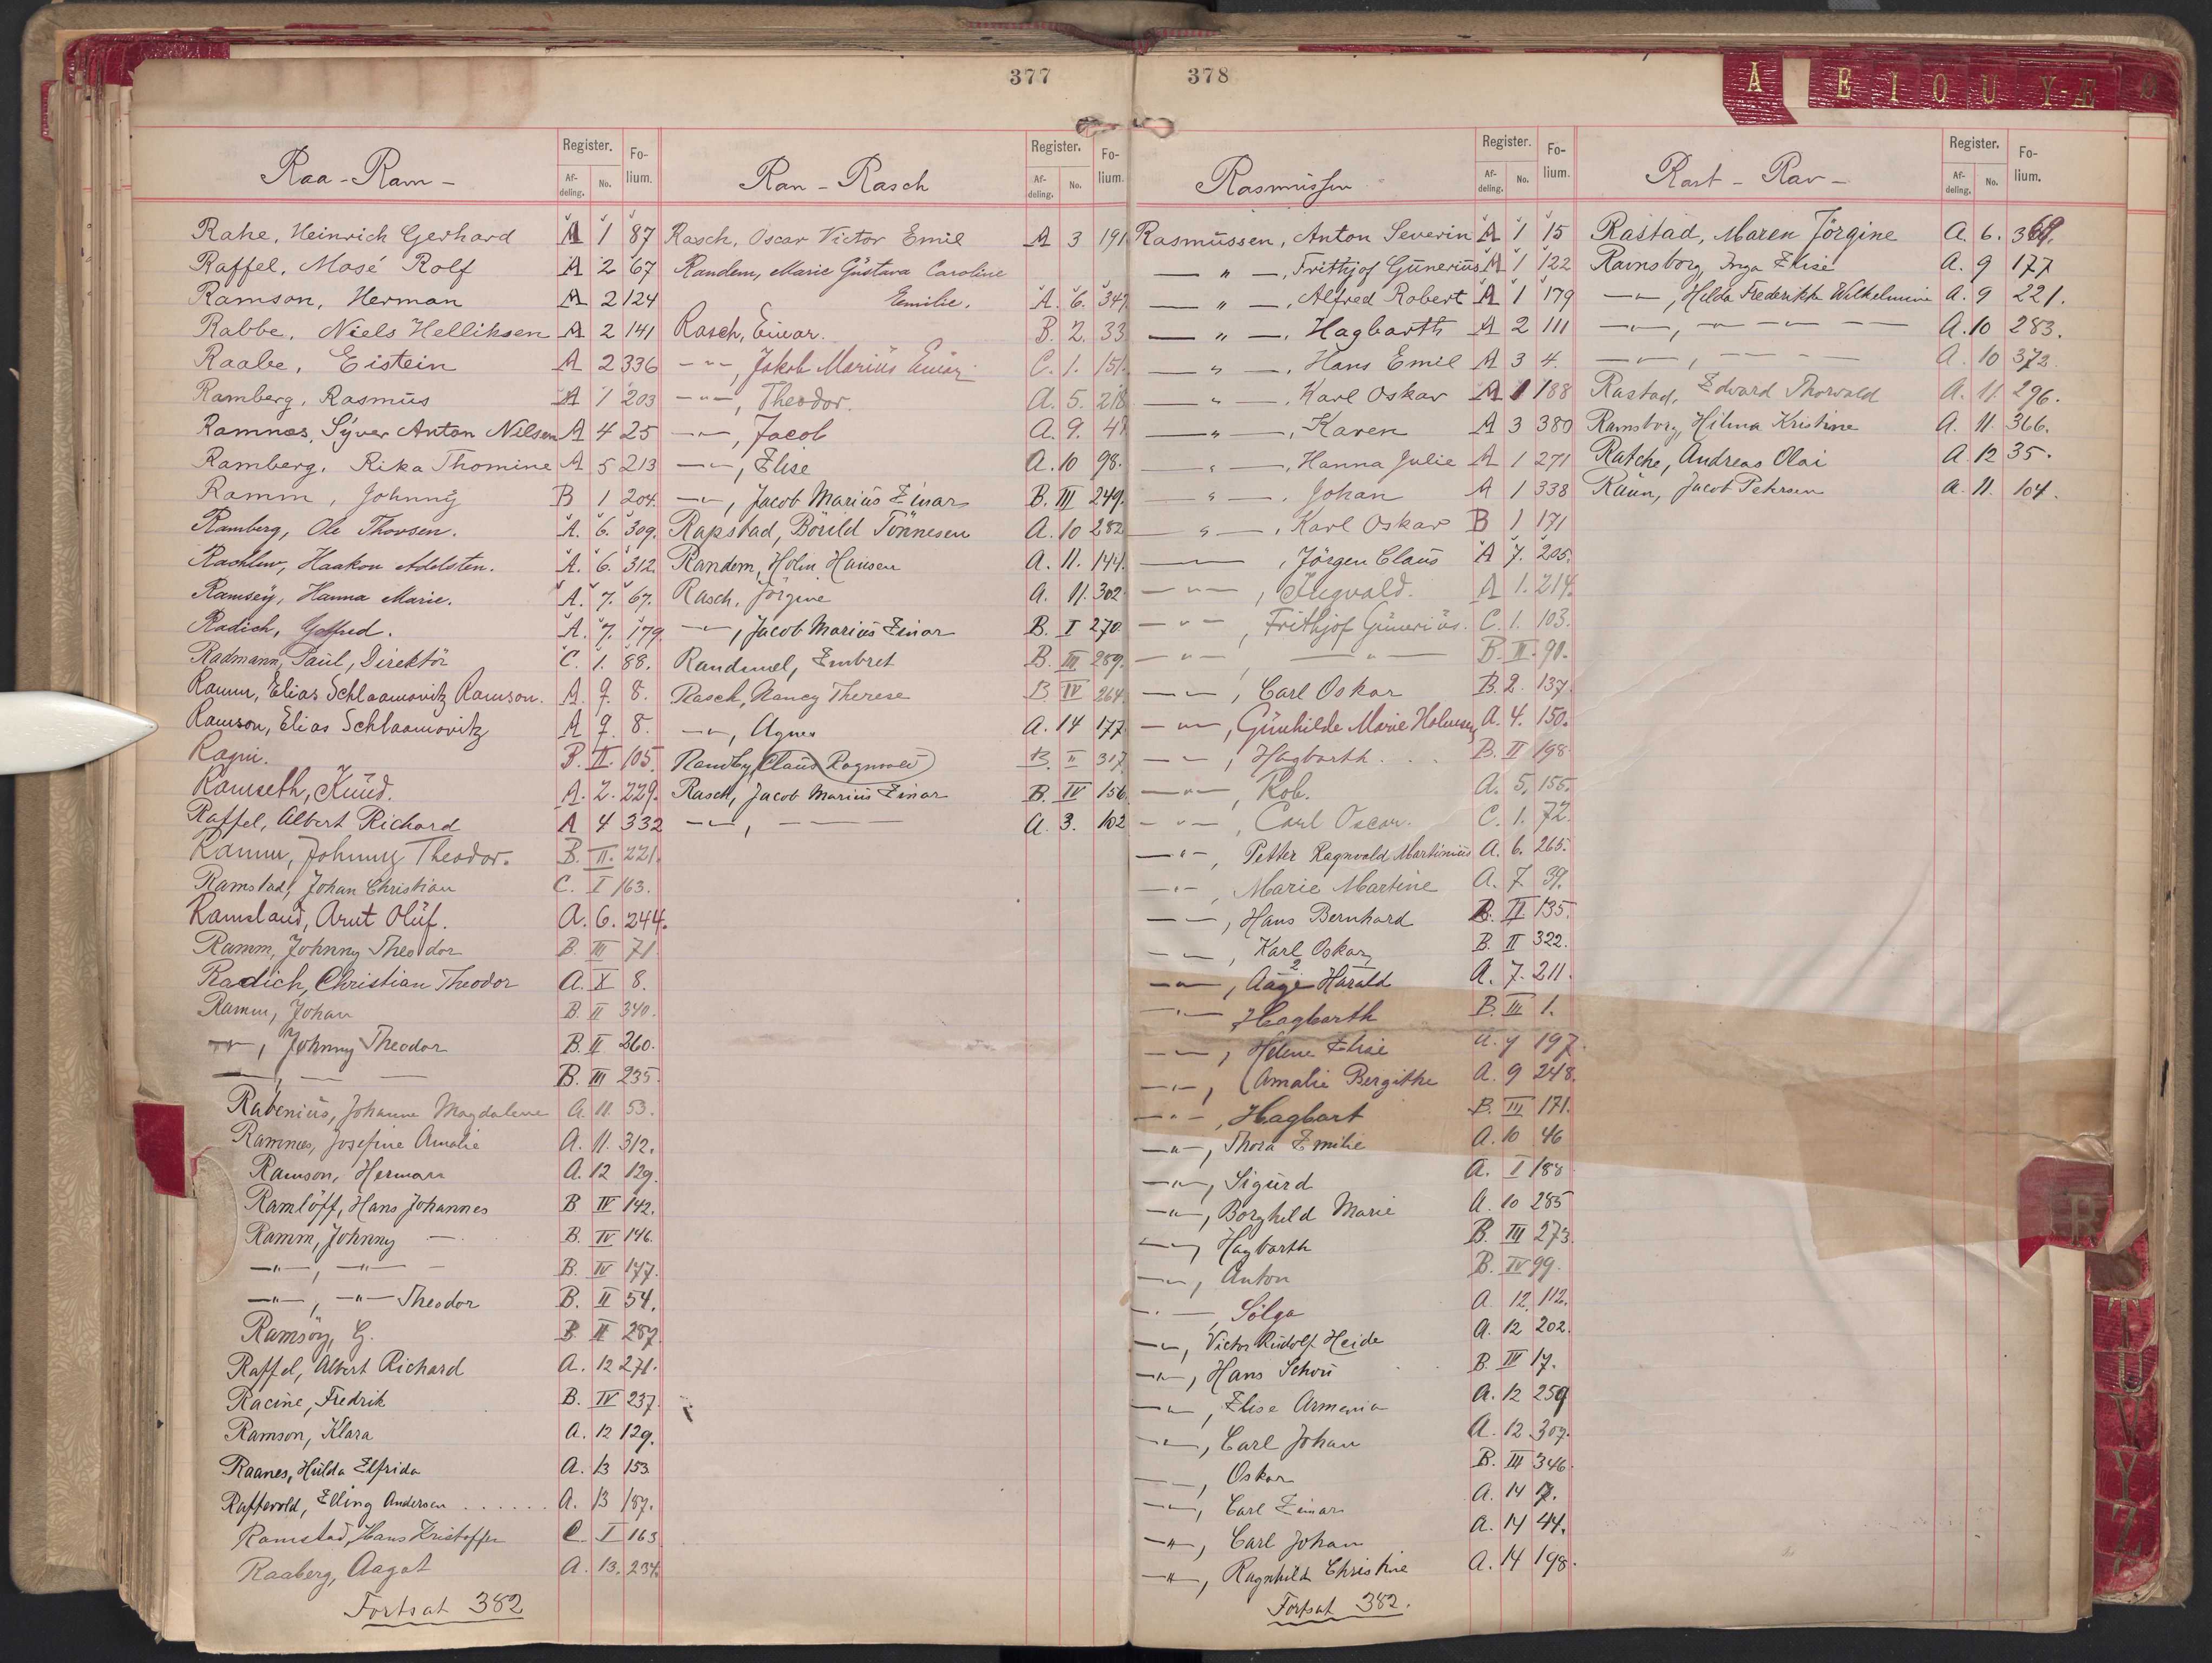 377
Raa - Ram -
Register.
Af-deling.
No.
Folium.
Rahe, Heinrich Gerhard A 1 87
Raffel, Mosé Rolf A 2 67
Ramson, Herman A 2 124
Rabbe, Niels Helliksen A 2 141
Raabe, Eistein A 2 336
Ramberg, Rasmus A 1 203
Ramnæs, Syver Anton Nilsen A 4 25
Ramberg, Rika Thomine A 5 213
Ramm, Johnny B 1 204
Ramberg, Ole Thovsen. A. 6. 309.
Haakon Adelsten. A. 6. 312.
Ramsey, Hanna Marie. A. 7. 67.
Radich, Gotfred. A. 7. 179
Radmann, Paul, Direktör C. 1. 88.
Ramm, Elias Schlaamovitz Ramson. A. 9. 8.
Ramson, Elias Schlaamovitz A 9. 8.
B. II. 105.
Ramseth, Knud. A. 2. 229.
Raffel, Albert Richard A 4 332
Ramm, Johnny Theodor. B. II. 221.
Ramstad, Johan Christian C. I 163.
Ramsland, Arnt Oluf. A. 6. 244.
Ramm, Johnny Theodor B. III 71.
Radich, Christian Theodor A. X 8.
Ramm, Johan B. II 340.
—"—, Johnny Theodor B. II 260.
—, — — B. III 235.
Rabenius, Johanne Magdalene A. 11. 53.
Ramnes, Josefine Amalie A. 11. 312.
Ramson, Herman A. 12 129.
Ramlöff, Hans Johannes B IV 142.
Ramm, Johnny — B. IV 146.
—"—, —"— — B. IV 177.
—"—, —"— Theodor B. II 54.
Ramsöy, G. B II 287.
Raffel, Albert Richard A. 12 271.
Racine, Fredrik B. IV 237.
Ramson, Klara A. 12 129.
Raanes, Hulda Elfrida A. 13 153
Elling Andersen A. 13 187.
Ramstad, Hans Kristoffer C. I 163
Raaberg, Aagot A. 13. 234.
Fortsat 382
Ran - Rasch
Register.
Af-deling.
No.
Folium.
Rasch, Oscar Victor Emil A 3 191
Randem, Marie Gustava Caroline
Emilie. A. 6. 347
Rasch, Einar. B. 2. 33
—"—, Jakob Marius Einar C. 1. 151.
—"—, Theodor. A. 5. 218
—"—, Jacob A. 9. 41
—"—, Elise A. 10 98.
—"—, Jacob Marius Einar B. III 249.
Rapstad, Börild Tönnesen A. 10 282
Randem, Holm Hansen A. 11. 144.
Rasch, Jörgine A. 11. 302.
—"—, Jacob Marius Einar B. I 270
Embret B. III 289.
Rasch, Nancy Therese B IV 264.
—"—, Agnes A. 14 177
Randby, Claus Ragnvald B. II 317
Rasch, Jacob Marius Einar B. IV 156.
—"—, — — — A. 3. 102
378
Rasmussen
Register.
Af-deling.
No.
Folium.
Rasmussen, Anton Severin A 1 15
— " —, Frithjof Gunerius A 1 122
— " —, Alfred Robert A 1 179
— " —, Hagbarth A 2 111
— " —, Hans Emil A 3 4.
— " —, Karl Oskar A 1 188
— " —, Karen A 3 380
— " —, Hanna Julie A 1 271
— " —, Johan A 1 338
— " —, Karl Oskar B 1 171
———, Jörgen Claus A 7. 205.
— " —, Ingvald. A 1. 214.
— " —, Frithjof Gunerius. C. 1. 103.
— " —, — " — B. II. 90.
— " —, Carl Oskar B. 2. 137.
— " —, Gunhilde Marie A. 4. 150.
— " —, Hagbarth B. II 198.
— " —, Rob. A. 5. 155.
— " —, Carl Oscar. C. 1. 72.
— " —, Petter Ragnvald Martinius A. 6. 265.
— " —, Marie Martine A. 7 39.
— " —, Hans Bernhard B. II. 135.
— " —, Karl Oskar B. II 322.
— " —, Aage Harald A. 7. 211.
— " — Hagbarth B. III 1.
— " —, Helene Elise A. 9 197.
— " —, Amalie Bergithe A. 9 248.
— " —, Hagbart B. III 171.
— " —, Thora Emilie A. 10 46
— " —, Sigurd A. I 188
— " —, Borghild Marie A. 10 285
— " —, Hagbarth B. III 273.
— " —, Anton B. IV 99.
— " —, Solga A 12. 112.
— " —, Victor Rudolf Heide A. 12 202.
— " —, Hans Schou B. IV 17.
— " —, Elise Armenia A. 12 259
— " —, Carl Johan A. 12 307.
— —, Oskar B. III 346.
— " —, Carl Einar A. 14 7.
— " —, Carl Johan A. 14 44.
— " —, Ragnhild Christine A. 14 198.
Fortsat 382.
Rast - Rav -
Register.
Af-deling.
No.
Folium.
Rastad, Maren Jörgine A. 6. 369.
Ravnsborg, Inga Elise A. 9 177
—"—, Hilda Frederikke Wilhelmine A. 9 221.
—"—, —"— —"— — A. 10 283.
—"—, — — — A. 10 372.
Rastad, Edvard Thorvald A. 11. 296.
Ravnsborg, Hilma Kristine A. 11. 366.
Ratche, Andreas Olai A. 12 35.
Raun, Jacob Petersen A. 11. 104.
A E I O U Y-Æ Ø
R
T U V Y Z